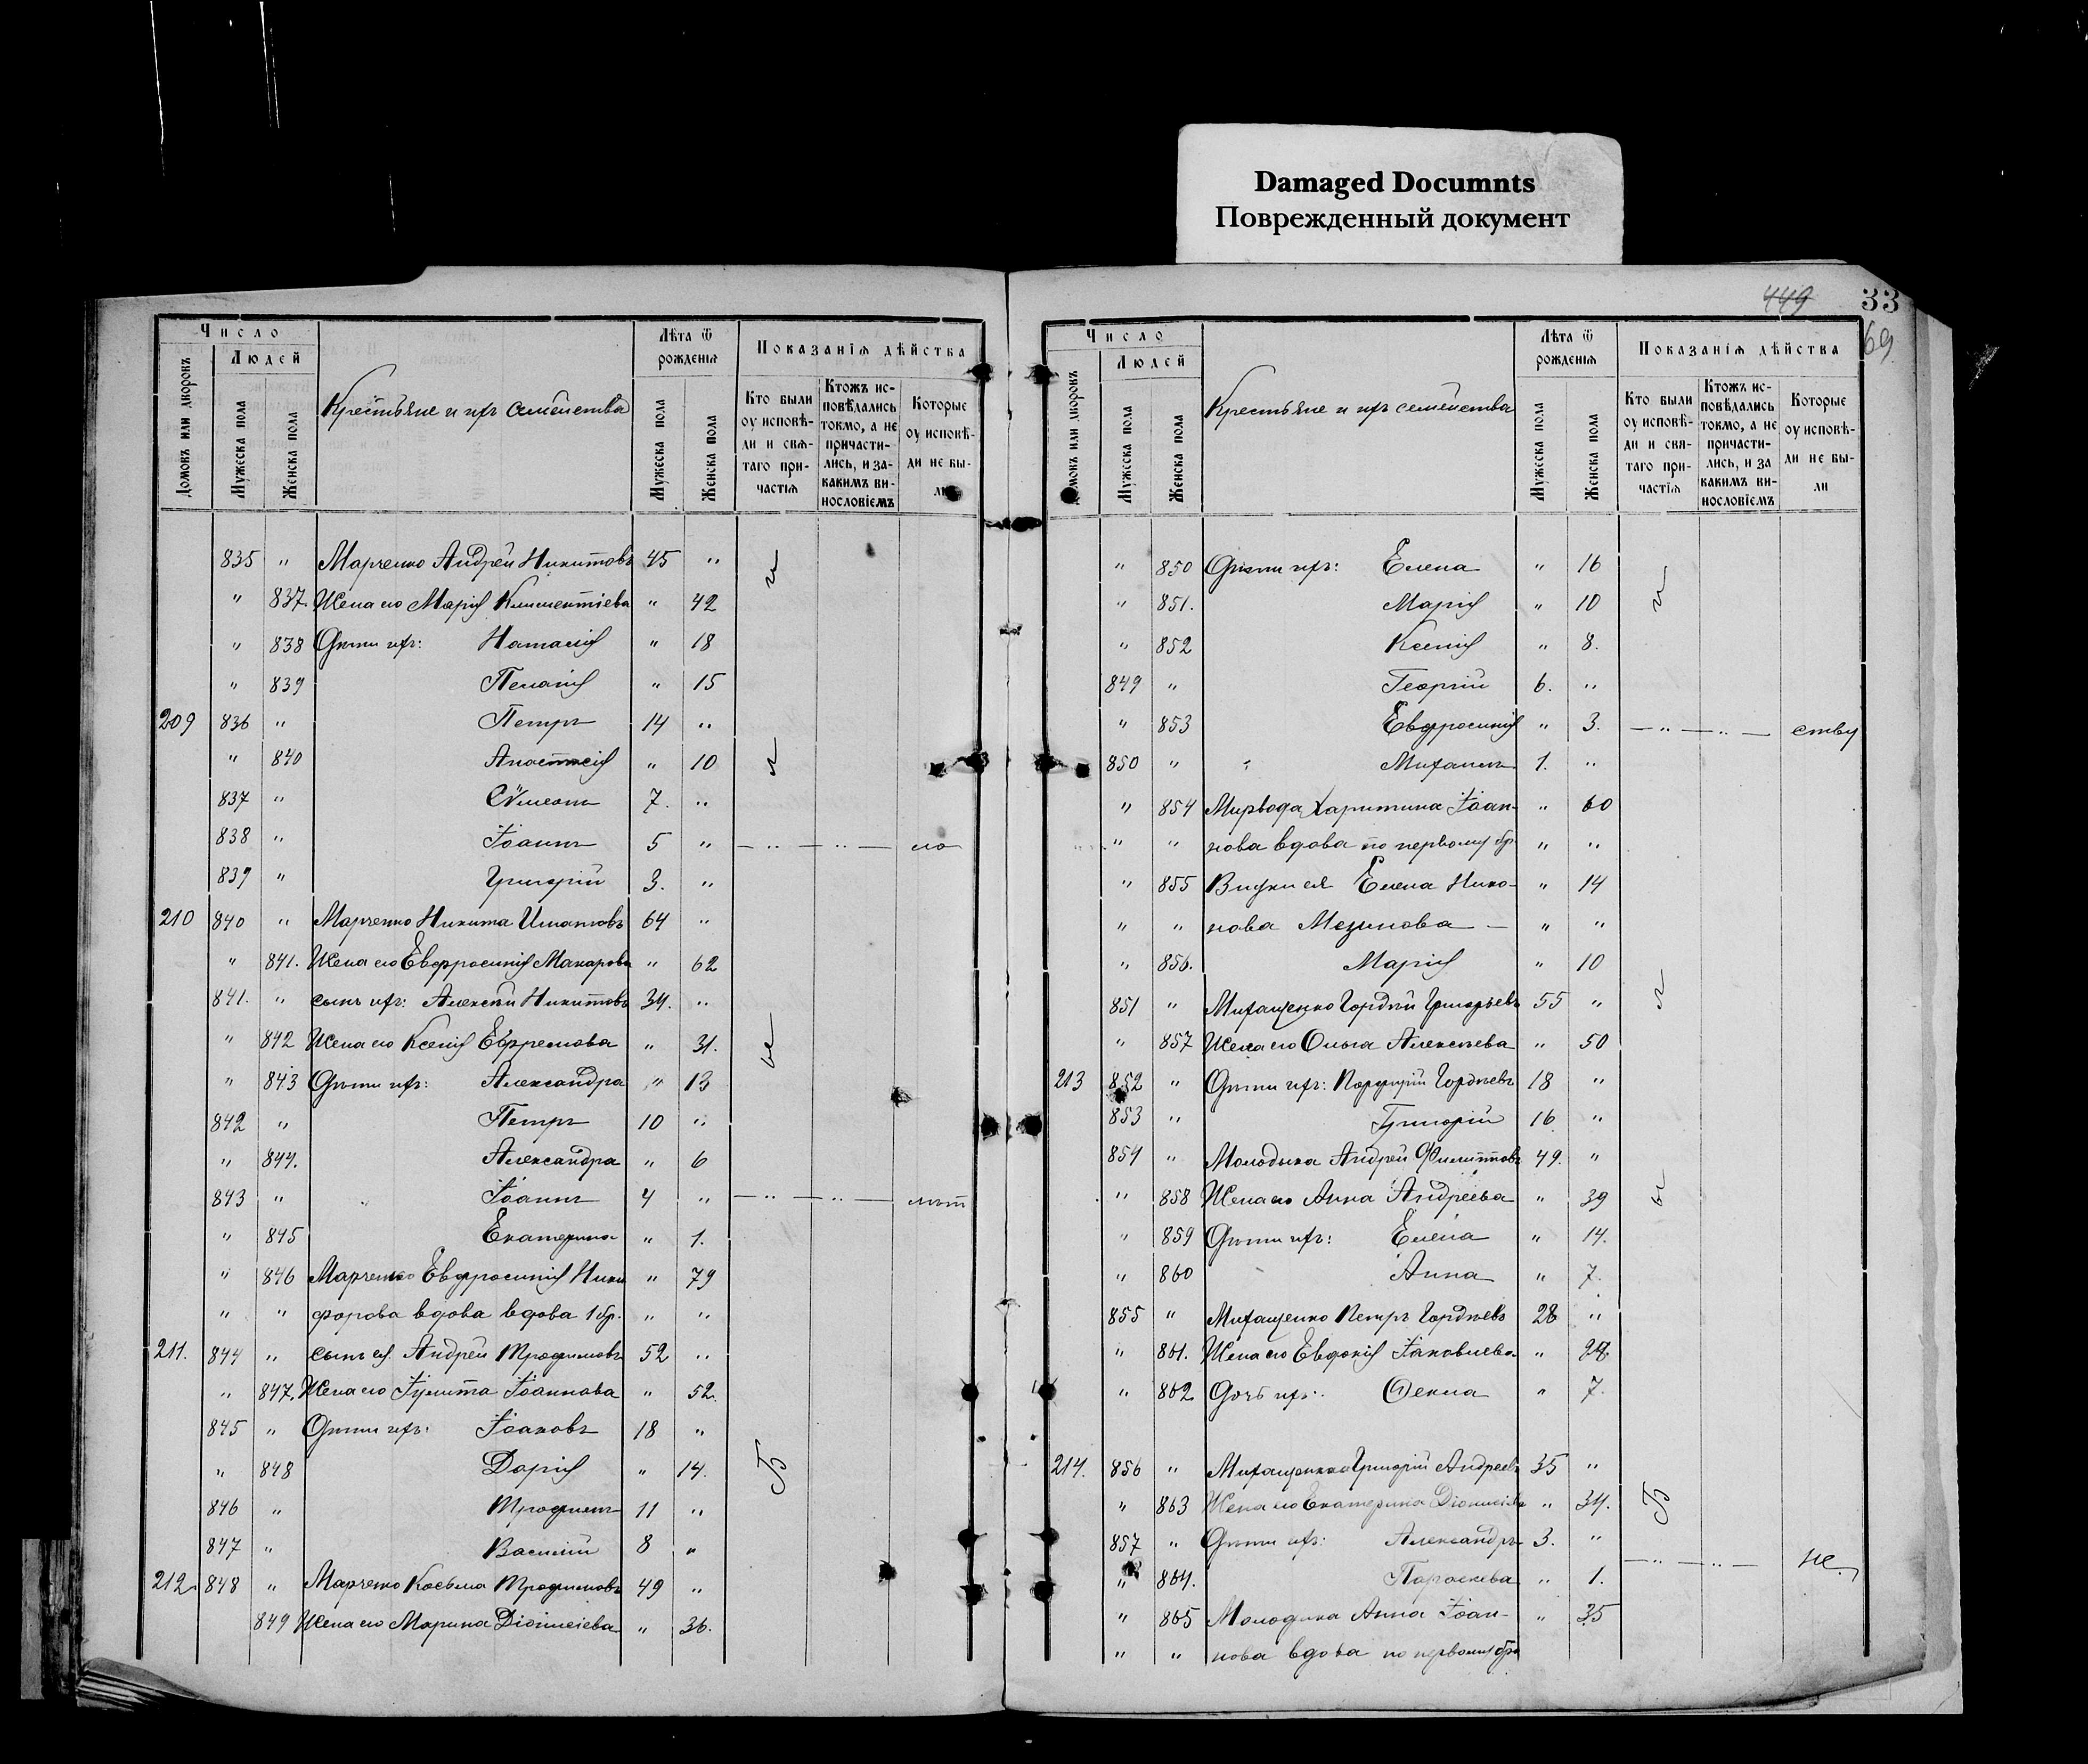 Damaged Documnts
Поврежденный документ
449
33
69.
Число
Людей
Домовъ или дворовъ
Мужеска пола
Женска пола
Крестьяне и ихъ семейства
Лѣта ѿ рожденїѧ
Мужеска пола
Женска пола
Показанїѧ дѣйства
Кто были оу исповѣди и свѧтаго причастїѧ
Ктожъ исповѣдались токмо, а не причастились, и за какимъ винословїемъ
Которые оу исповѣди не были
835 " Марченко Андрей Никитовъ 45 "
" 837. Жена его Марія Климентіева " 42
" 838 Дѣти ихъ: Наталія " 18
" 839 Пелагія " 15
209 836 " Петръ 14 "
" 840 Анастасія " 10
837 " Сѵмеонъ 7. "
838 " Іоаннъ 5 " — " — " —
839 " Григорій 3. "
210 840 " Марченко Никита Игнатовъ 64 "
" 841. Жена его Евфросинія Макарова " 62
841. " сынъ ихъ: Алексѣй Никитовъ 34. "
" 842 Жена его Ксенія Ефремова " 31.
" 843 Дѣти ихъ: Александра " 13
842 " Петръ 10 "
" 844. Александра " 6
843 " Іоаннъ 4 " — " — " — лѣт
" 845 Екатерина " 1.
" 846 Марченко Евфросинія Ники " 79
" " форова вдова вдова 1 бр. " "
211. 844 " сынъ ея Андрей Трофимовъ 52 "
" 847. Жена его Іулитта Іоаннова " 52.
845 " Дѣти ихъ: Іаковъ 18 "
" 848 Дарія " 14.
846 " Трофимъ 11 "
847 " Василій 8 "
212. 848 " Марченко Косьма Трофимовъ 49 "
849 Жена его Марина Діонисіева " 36.
Число
Людей
Домовъ или дворовъ
Мужеска пола
Женска пола
Крестьяне и ихъ семейства
Лѣта ѿ рожденїѧ
Мужеска пола
Женска пола
Показанїѧ дѣйства
Кто были оу исповѣди и свѧтаго причастїѧ
Ктожъ исповѣдались токмо, а не причастились, и за какимъ винословїемъ
Которые оу исповѣди не были
" 850 Дѣти ихъ: Елена " 16
" 851. Марія " 10
" 852 Ксенія " 8.
849 " Георгій 6. "
" 853 Евфросинія " 3. — " — " — ству
850 " Михаилъ 1. "
" 854 Мирвода Харитина Іоан- " 60
" " нова вдова по первому бр. " "
" 855 Внуки ея Елена Нико- " 14
" " нова — " "
" 856. Марія " 10
851 " Михащенко Гордѣй Григорьевъ 55 "
" 857 Жена его Ольга Алексѣева " 50
213 852 " Дѣти ихъ: Порфирій Гордѣевъ 18 "
853 " Григорій 16 "
854 " Молодыка Андрей Филипповъ 49. "
" 858 Жена его Анна Андреева " 39
" 859 Дѣти ихъ: Елена " 14.
" 860 Анна " 7.
855 " Михащенко Петръ Гордѣевъ 28 "
" 861. Жена его Евдокія Іаковлева "
" 862 Дочь ихъ: Ѳекла " 7.
214. 856 " Михащенко Григорій Андреевъ 35 "
" 863 Жена его Екатерина Діонисіева " 34.
857 " Дѣти ихъ: Александръ 3. "
— " — " — не
" 864. Параскева " 1.
" 865 Молодыка Анна Іоан- " 35
" " нова вдова по первому бра